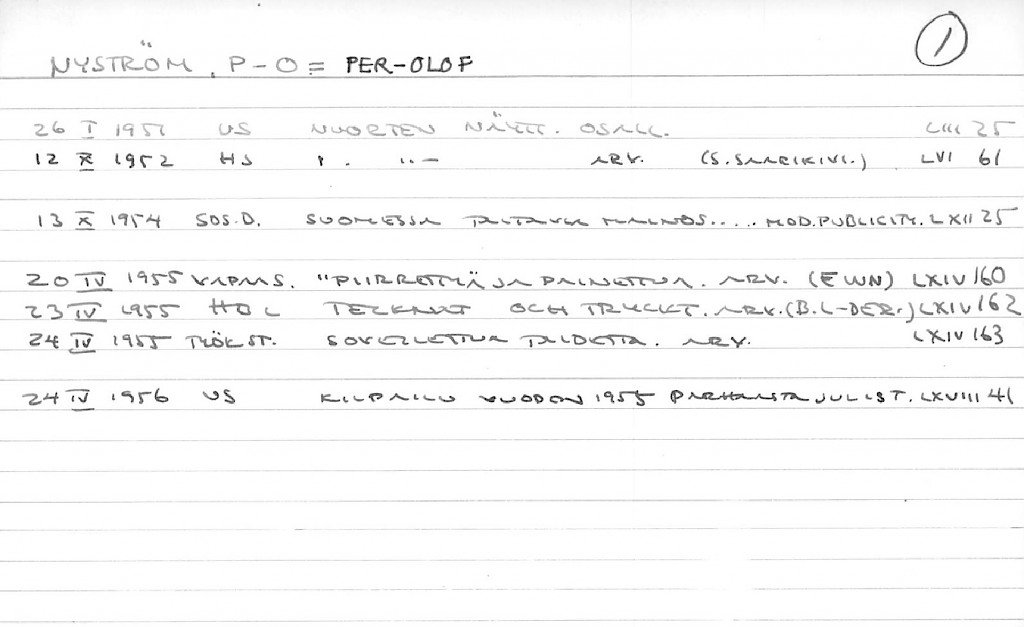 1
NYSTRÖM, P-O = PER-OLOF
26 I 1951 US NUORTEN NÄYTT. OSALL. LIII 25
12 X 1952 HS " . " — ARV. (S. SAARIKIVI.) LVI 61
13 X 1954 SOS.D. SUOMESSA TAITAVIA MAINOS.... MOD.PUBLICITY. LXII 25
20 IV 1955 VAPAA S. "PIIRRETTYÄ JA PAINETTUA. ARV. (EWN) LXIV 160
23 IV 1955 HBL TECKNAT OCH TRYCKT. ARV. (B.L-DER.) LXIV 162
24 IV 1955 TYÖK.ST. SOVELLETTUA TAIDETTA. ARV. LXIV 163
24 IV 1956 US KILPAILU VUODEN 1955 PARHAISTA JULIST. LXVIII 41